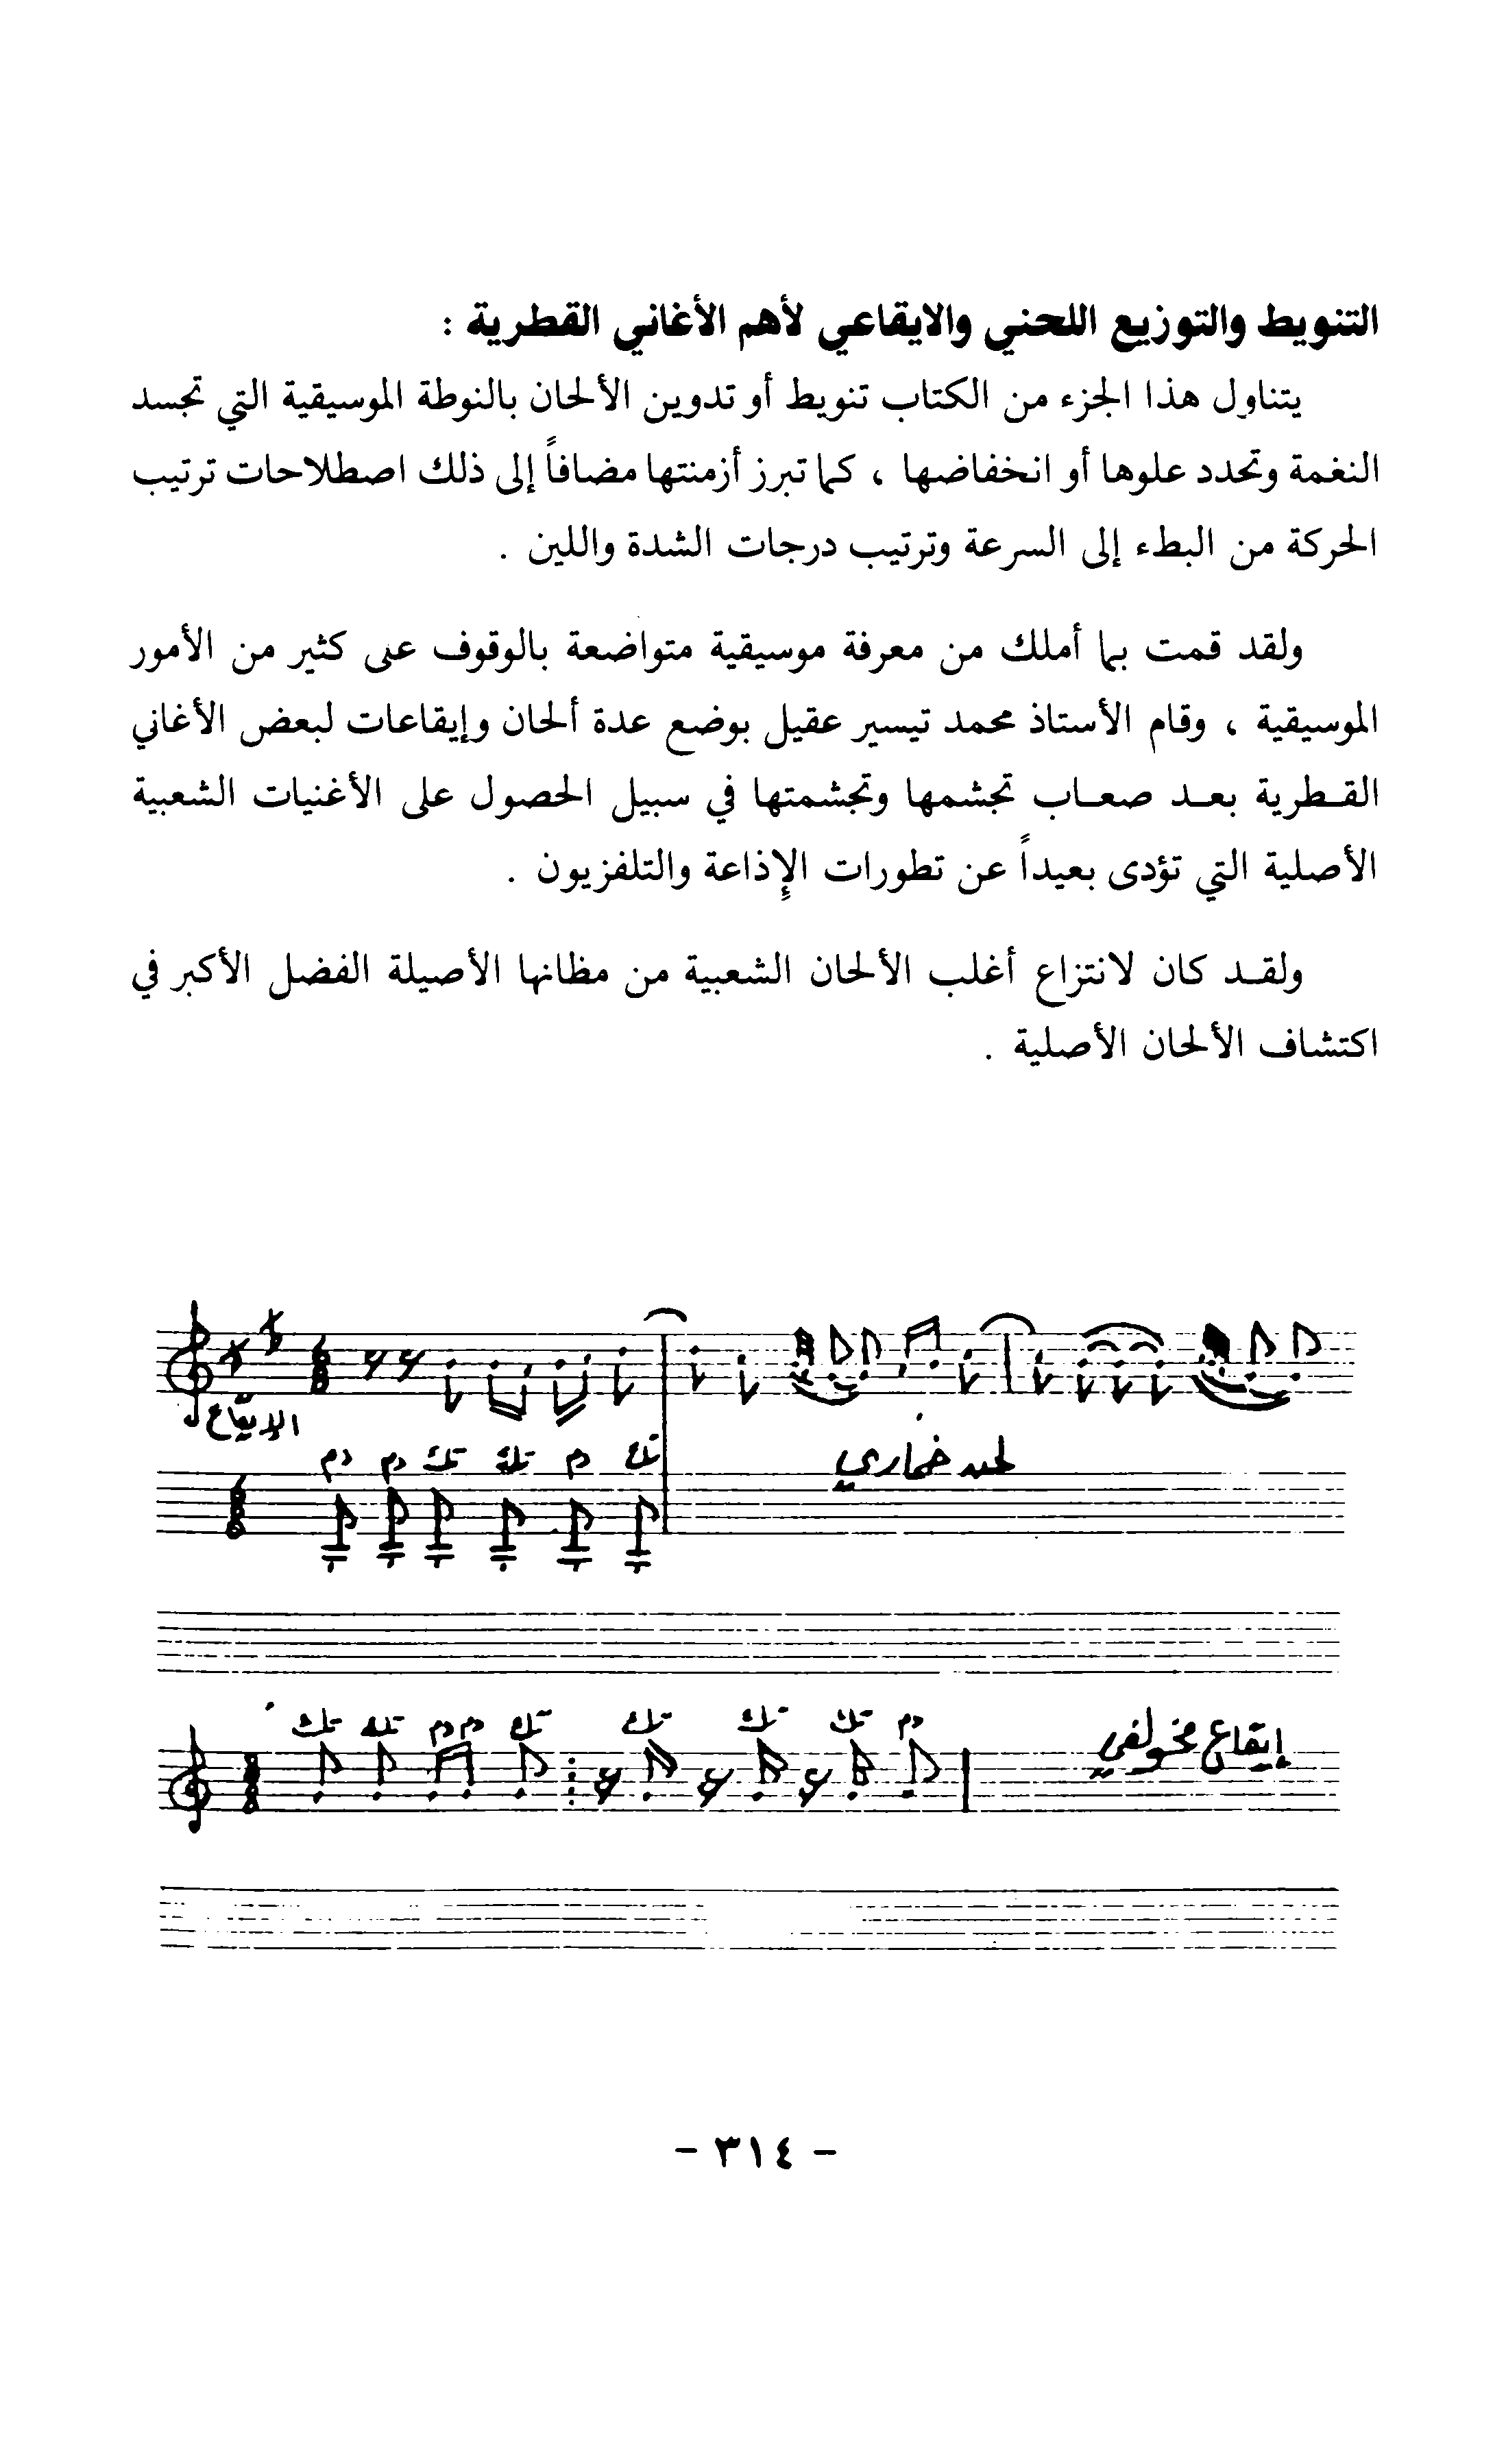 التنويط والتوزيع اللحني والايقاعي لأهم الأغاني القطرية :
يتناول هذا الجزء من الكتاب تنويط أو تدوين الألحان بالنوطة الموسيقية التي تجسد
النغمة وتحدد علوها أو انخفاضها ، كما تبرز أزمنتها مضافاً إلى ذلك اصطلاحات ترتيب
الحركة من البطء إلى السرعة وترتيب درجات الشدة واللين .
ولقد قمت بما أملك من معرفة موسيقية متواضعة بالوقوف على كثير من الأمور
الموسيقية ، وقام الأستاذ محمد تيسير عقيل بوضع عدة ألحان وإيقاعات لبعض الأغاني
القطرية بعد صعاب تجشمها وتجشمتها في سبيل الحصول على الأغنيات الشعبية
الأصلية التي تؤدى بعيداً عن تطورات الإذاعة والتلفزيون .
ولقد كان لانتزاع أغلب الألحان الشعبية من مظانها الأصيلة الفضل الأكبر في
اكتشاف الألحان الأصلية .
الإيقاع
دم دم تك تك دم تك
لحن خماري
تك تك دم دم تك تك تك تك دم
إيقاع مخولفي
- ٣١٤ -